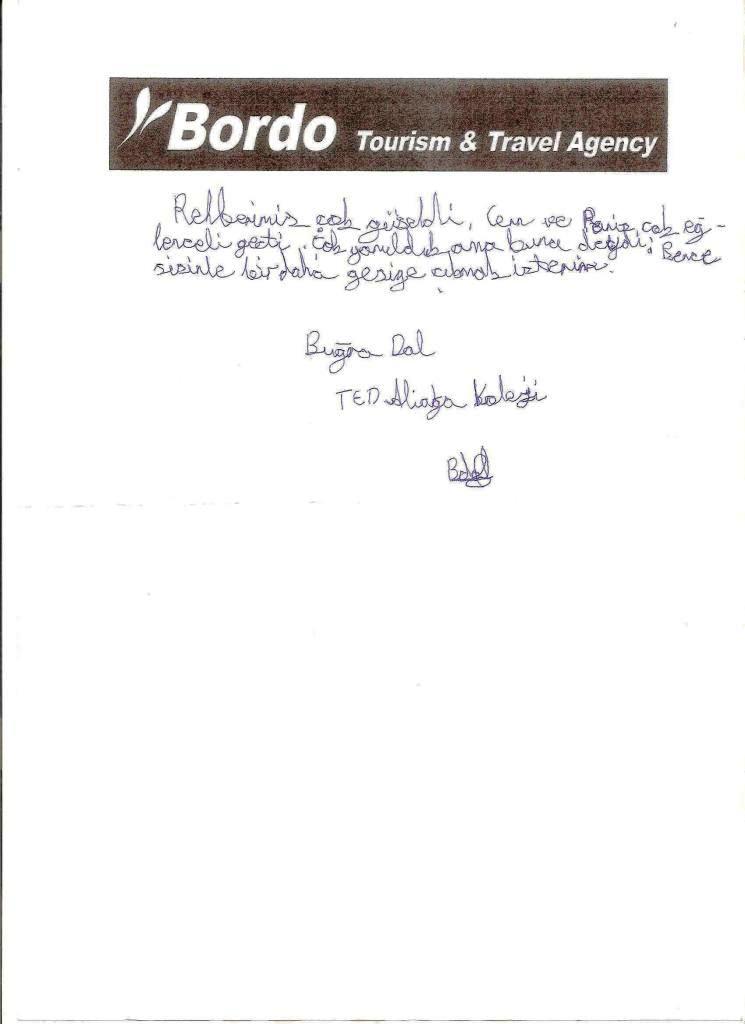 Bordo Tourism & Travel Agency
Rehberimiz çok güzeldi, Cem ve çok eğ-
lenceli geçti. Çok yorulduk ama buna değdi. Bence
sizinle bir daha geziye çıkmak isterim.
Buğra Dal
TED Aliağa Koleji